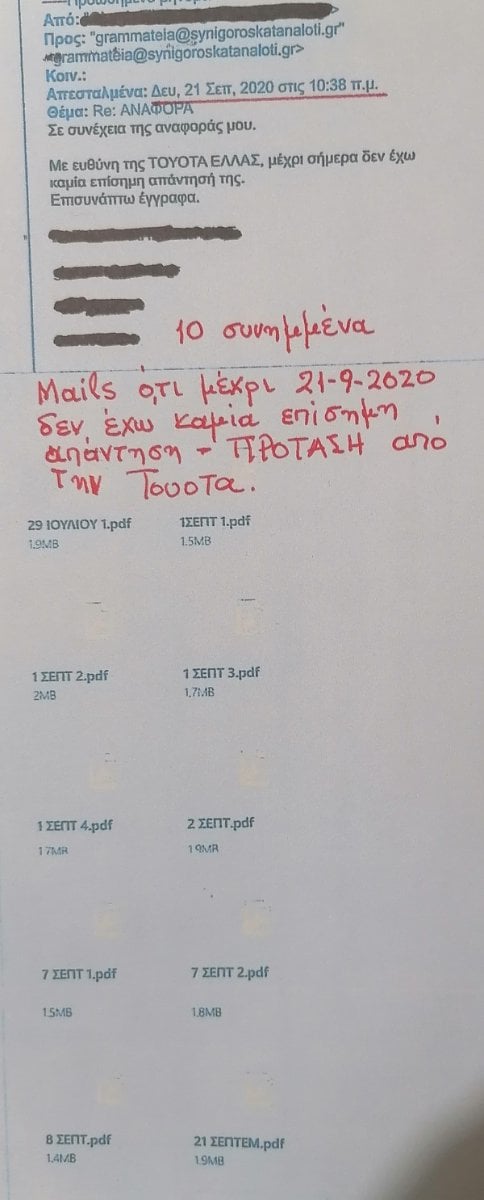 Από:
Προς: "grammateia@synigoroskatanaloti.gr"
grammateia@synigoroskatanaloti.gr>
Κοιν.:
Απεσταλμένα: Δευ, 21 Σεπ, 2020 στις 10:38 π.μ.
Θέμα: Re: ΑΝΑΦΟΡΑ
Σε συνέχεια της αναφοράς μου.
Με ευθύνη της TOYOTA ΕΛΛΑΣ, μέχρι σήμερα δεν έχω
καμία επίσημη απάντησή της.
Επισυνάπτω έγγραφα.
10 συνημμένα
Mails ό,τι μέχρι 21-9-2020
δεν έχω καμία επίσημη
απάντηση - ΠΡΟΤΑΣΗ από
την Τουοτα.
29 ΙΟΥΛΙΟΥ 1.pdf 1ΣΕΠΤ 1.pdf
1.9MB 1.5MB
1 ΣΕΠΤ 2.pdf 1 ΣΕΠΤ 3.pdf
2MB 1.7MB
1 ΣΕΠΤ 4.pdf 2 ΣΕΠΤ.pdf
1.7MB 1.9MB
7 ΣΕΠΤ 1.pdf 7 ΣΕΠΤ 2.pdf
1.5MB 1.8MB
8 ΣΕΠΤ.pdf 21 ΣΕΠΤΕΜ.pdf
1.4MB 1.9MB